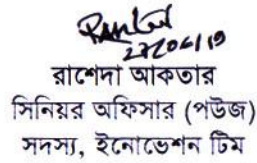 27/06/19
রাশেদা আকতার
সিনিয়র অফিসার (পউজ)
সদস্য, ইনোভেশন টিম